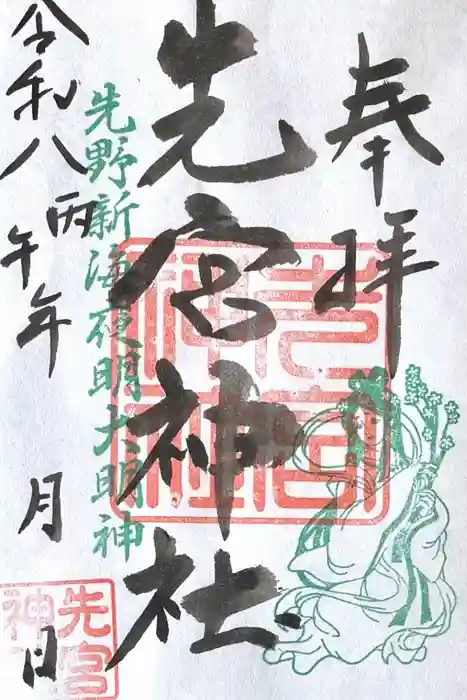 奉拝
先宮神社
先野新海夜明大明神
令和八丙午年 月 日
先宮神社
先宮神